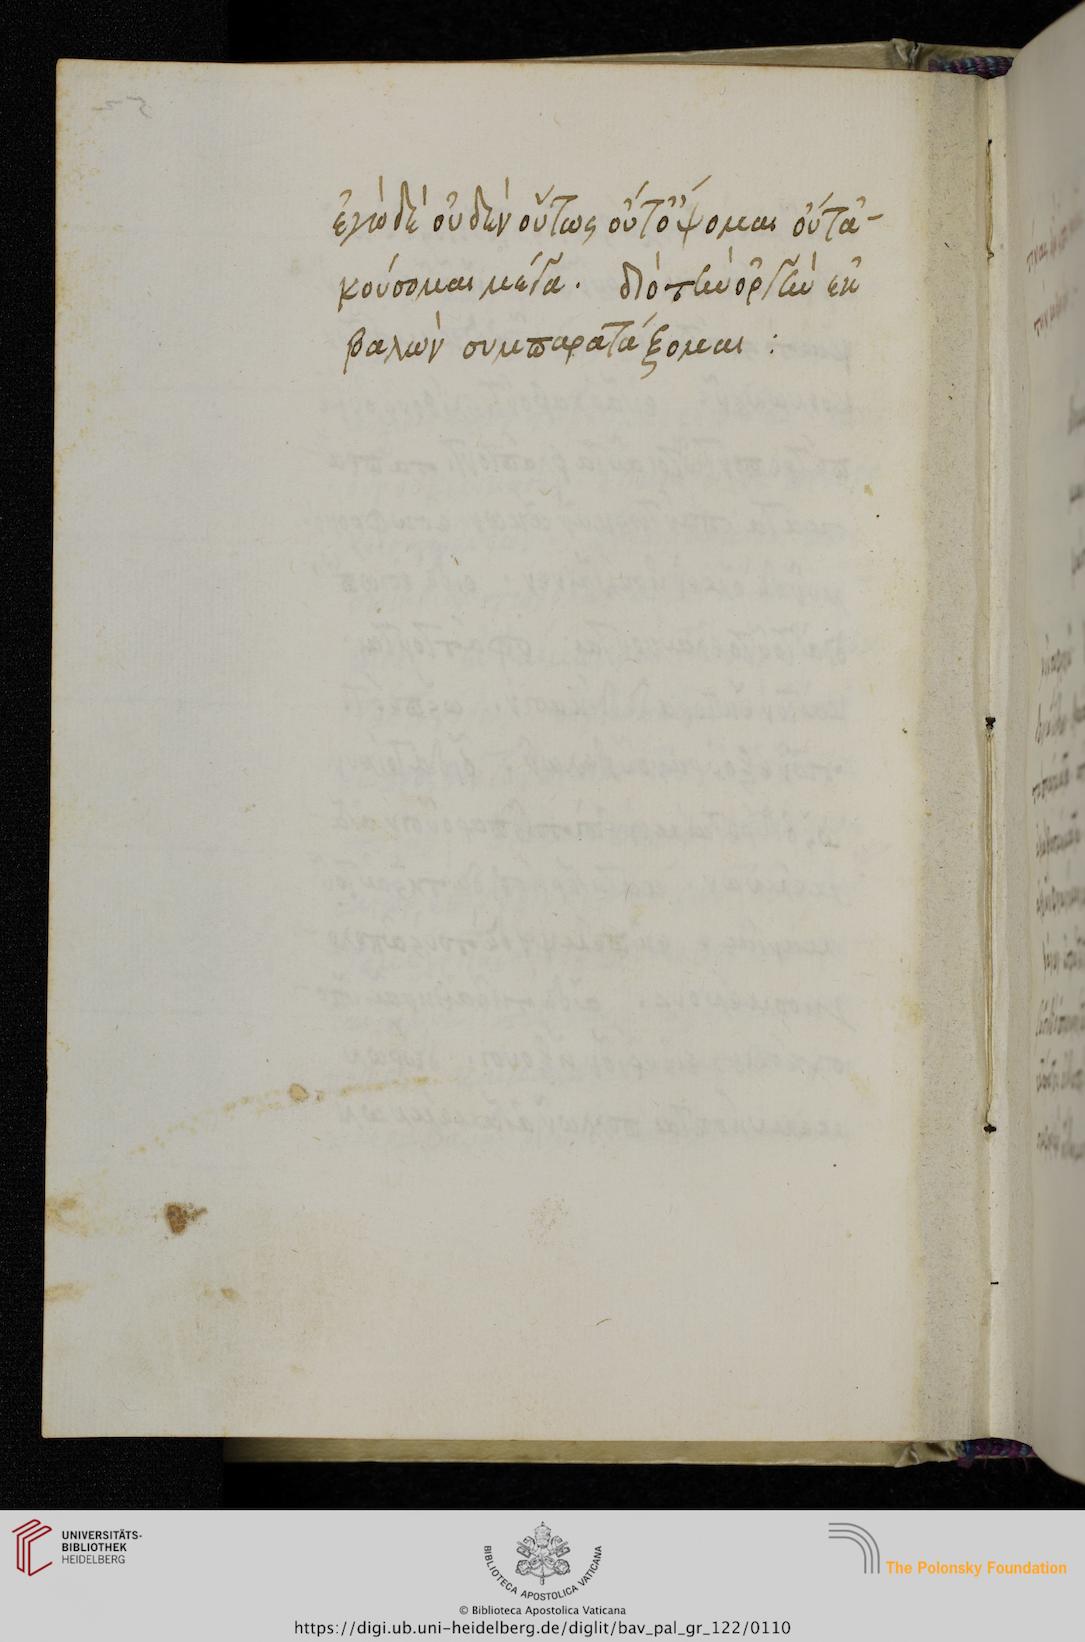 52
ἐγὼ δὲ οὐδὲν οὕτως οὔτ' ὄψομαι οὔτ' ἀ-
κούσομαι μέγα. διὸ τὴν ὀργὴν ἐκ
βαλὼν συμπαρατάξομαι :
UNIVERSITÄTS-
BIBLIOTHEK
HEIDELBERG
BIBLIOTECA APOSTOLICA VATICANA
The Polonsky Foundation
© Biblioteca Apostolica Vaticana
https://digi.ub.uni-heidelberg.de/diglit/bav_pal_gr_122/0110